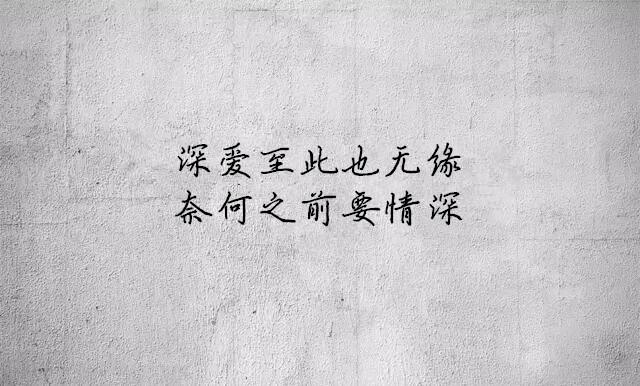 深爱至此也无缘
奈何之前要情深